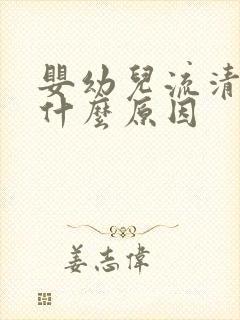 嬰幼兒流清
什麼原因
姜志偉